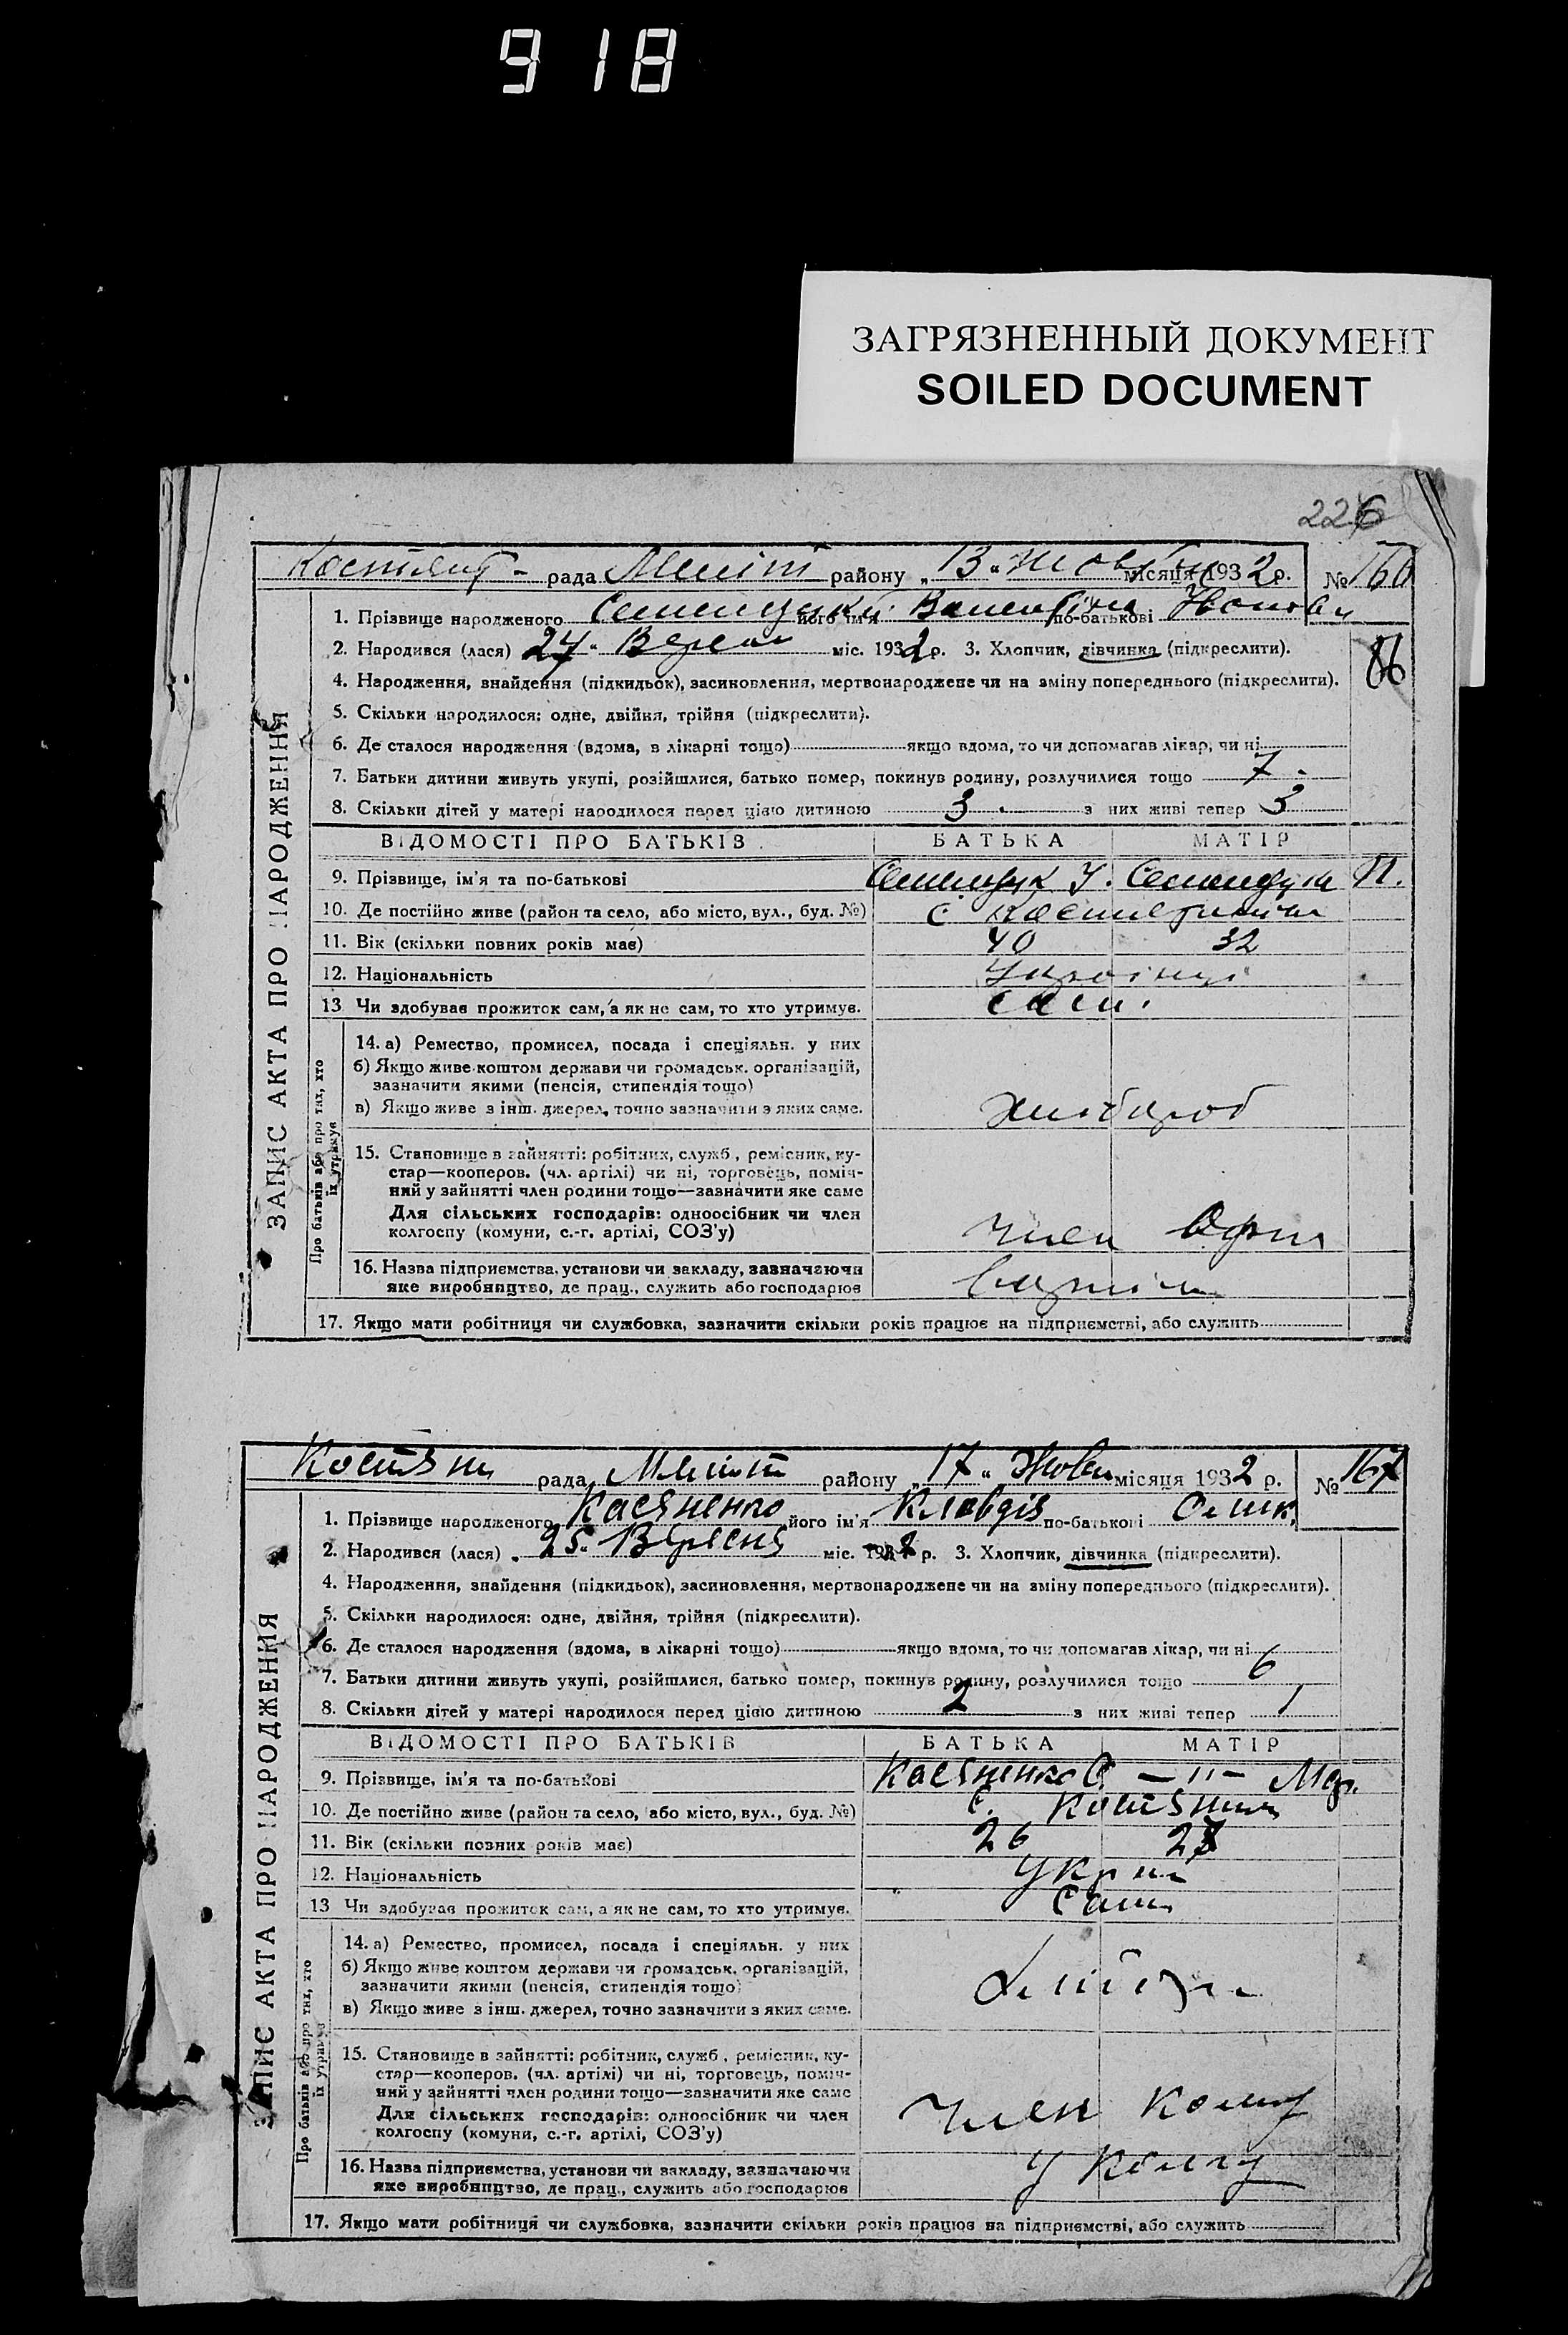 918
ЗАГРЯЗНЕННЫЙ ДОКУМЕНТ
SOILED DOCUMENT
226
рада району „13“ місяця 1932 р. № 166
1. Прізвище народженого його ім'я по-батькові
2. Народився (лася) 24 „ міс. 1932 р. 3. Хлопчик, дівчинка (підкреслити).
86
4. Народження, знайдення (підкидьок), засиновлення, мертвонароджене чи на зміну попереднього (підкреслити).
5. Скільки народилося: одне, двійня, трійня (підкреслити).
6. Де сталося народження (вдома, в лікарні тощо) якщо вдома, то чи допомагав лікар, чи ні
7. Батьки дитини живуть укупі, розійшлися, батько помер, покинув родину, розлучилися тощо 7.
8. Скільки дітей у матері народилося перед цією дитиною 3 з них живі тепер 3
ВІДОМОСТІ ПРО БАТЬКІВ БАТЬКА МАТІР
9. Прізвище, ім'я та по-батькові
10. Де постійно живе (район та село, або місто, вул., буд. №) с.
11. Вік (скільки повних років має) 40 32
12. Національність Українці
13 Чи здобуває прожиток сам, а як не сам, то хто утримує. сам.
14. а) Ремество, промисел, посада і спеціяльн. у них
б) Якщо живе коштом держави чи громадськ. організацій,
зазначити якими (пенсія, стипендія тощо)
в) Якщо живе з інш. джерел, точно зазначити з яких саме. хлібороб
15. Становище в зайнятті: робітник, служб., ремісник, ку-
стар—кооперов. (чл. артілі) чи ні, торговець, поміч-
ний у зайнятті член родини тощо—зазначити яке саме
Для сільських господарів: одноосібник чи член
колгоспу (комуни, с.-г. артілі, СОЗ'у) член
16. Назва підприємства, установи чи закладу, зазначаючи
яке виробництво, де прац., служить або господарює
17. Якщо мати робітниця чи службовка, зазначити скільки років працює на підприємстві, або служить
ЗАПИС АКТА ПРО НАРОДЖЕННЯ
Про батьків або про тих, хто
їх утримує
рада району „17“ Жовт місяця 1932 р. № 167
1. Прізвище народженого Касяненко його ім'я Клавдія по-батькові
2. Народився (лася) „25“ Вересня міс. 1932 р. 3. Хлопчик, дівчинка (підкреслити).
4. Народження, знайдення (підкидьок), засиновлення, мертвонароджене чи на зміну попереднього (підкреслити).
5. Скільки народилося: одне, двійня, трійня (підкреслити).
6. Де сталося народження (вдома, в лікарні тощо) якщо вдома, то чи допомагав лікар, чи ні
7. Батьки дитини живуть укупі, розійшлися, батько помер, покинув родину, розлучилися тощо 6
8. Скільки дітей у матері народилося перед цією дитиною 2 з них живі тепер 1
ВІДОМОСТІ ПРО БАТЬКІВ БАТЬКА МАТІР
9. Прізвище, ім'я та по-батькові Касяненко О. —"— Мар.
10. Де постійно живе (район та село, або місто, вул., буд. №) с.
11. Вік (скільки повних років має) 26
12. Національність
13 Чи здобуває прожиток сам, а як не сам, то хто утримує. Сами
14. а) Ремество, промисел, посада і спеціяльн. у них
б) Якщо живе коштом держави чи громадськ. організацій,
зазначити якими (пенсія, стипендія тощо)
в) Якщо живе з інш. джерел, точно зазначити з яких саме.
15. Становище в зайнятті: робітник, служб., ремісник, ку-
стар—кооперов. (чл. артілі) чи ні, торговець, поміч-
ний у зайнятті член родини тощо—зазначити яке саме
Для сільських господарів: одноосібник чи член
колгоспу (комуни, с.-г. артілі, СОЗ'у) член
16. Назва підприємства, установи чи закладу, зазначаючи
яке виробництво, де прац., служить або господарює у
17. Якщо мати робітниця чи службовка, зазначити скільки років працює на підприємстві, або служить
ЗАПИС АКТА ПРО НАРОДЖЕННЯ
Про батьків або про тих, хто
їх утримує